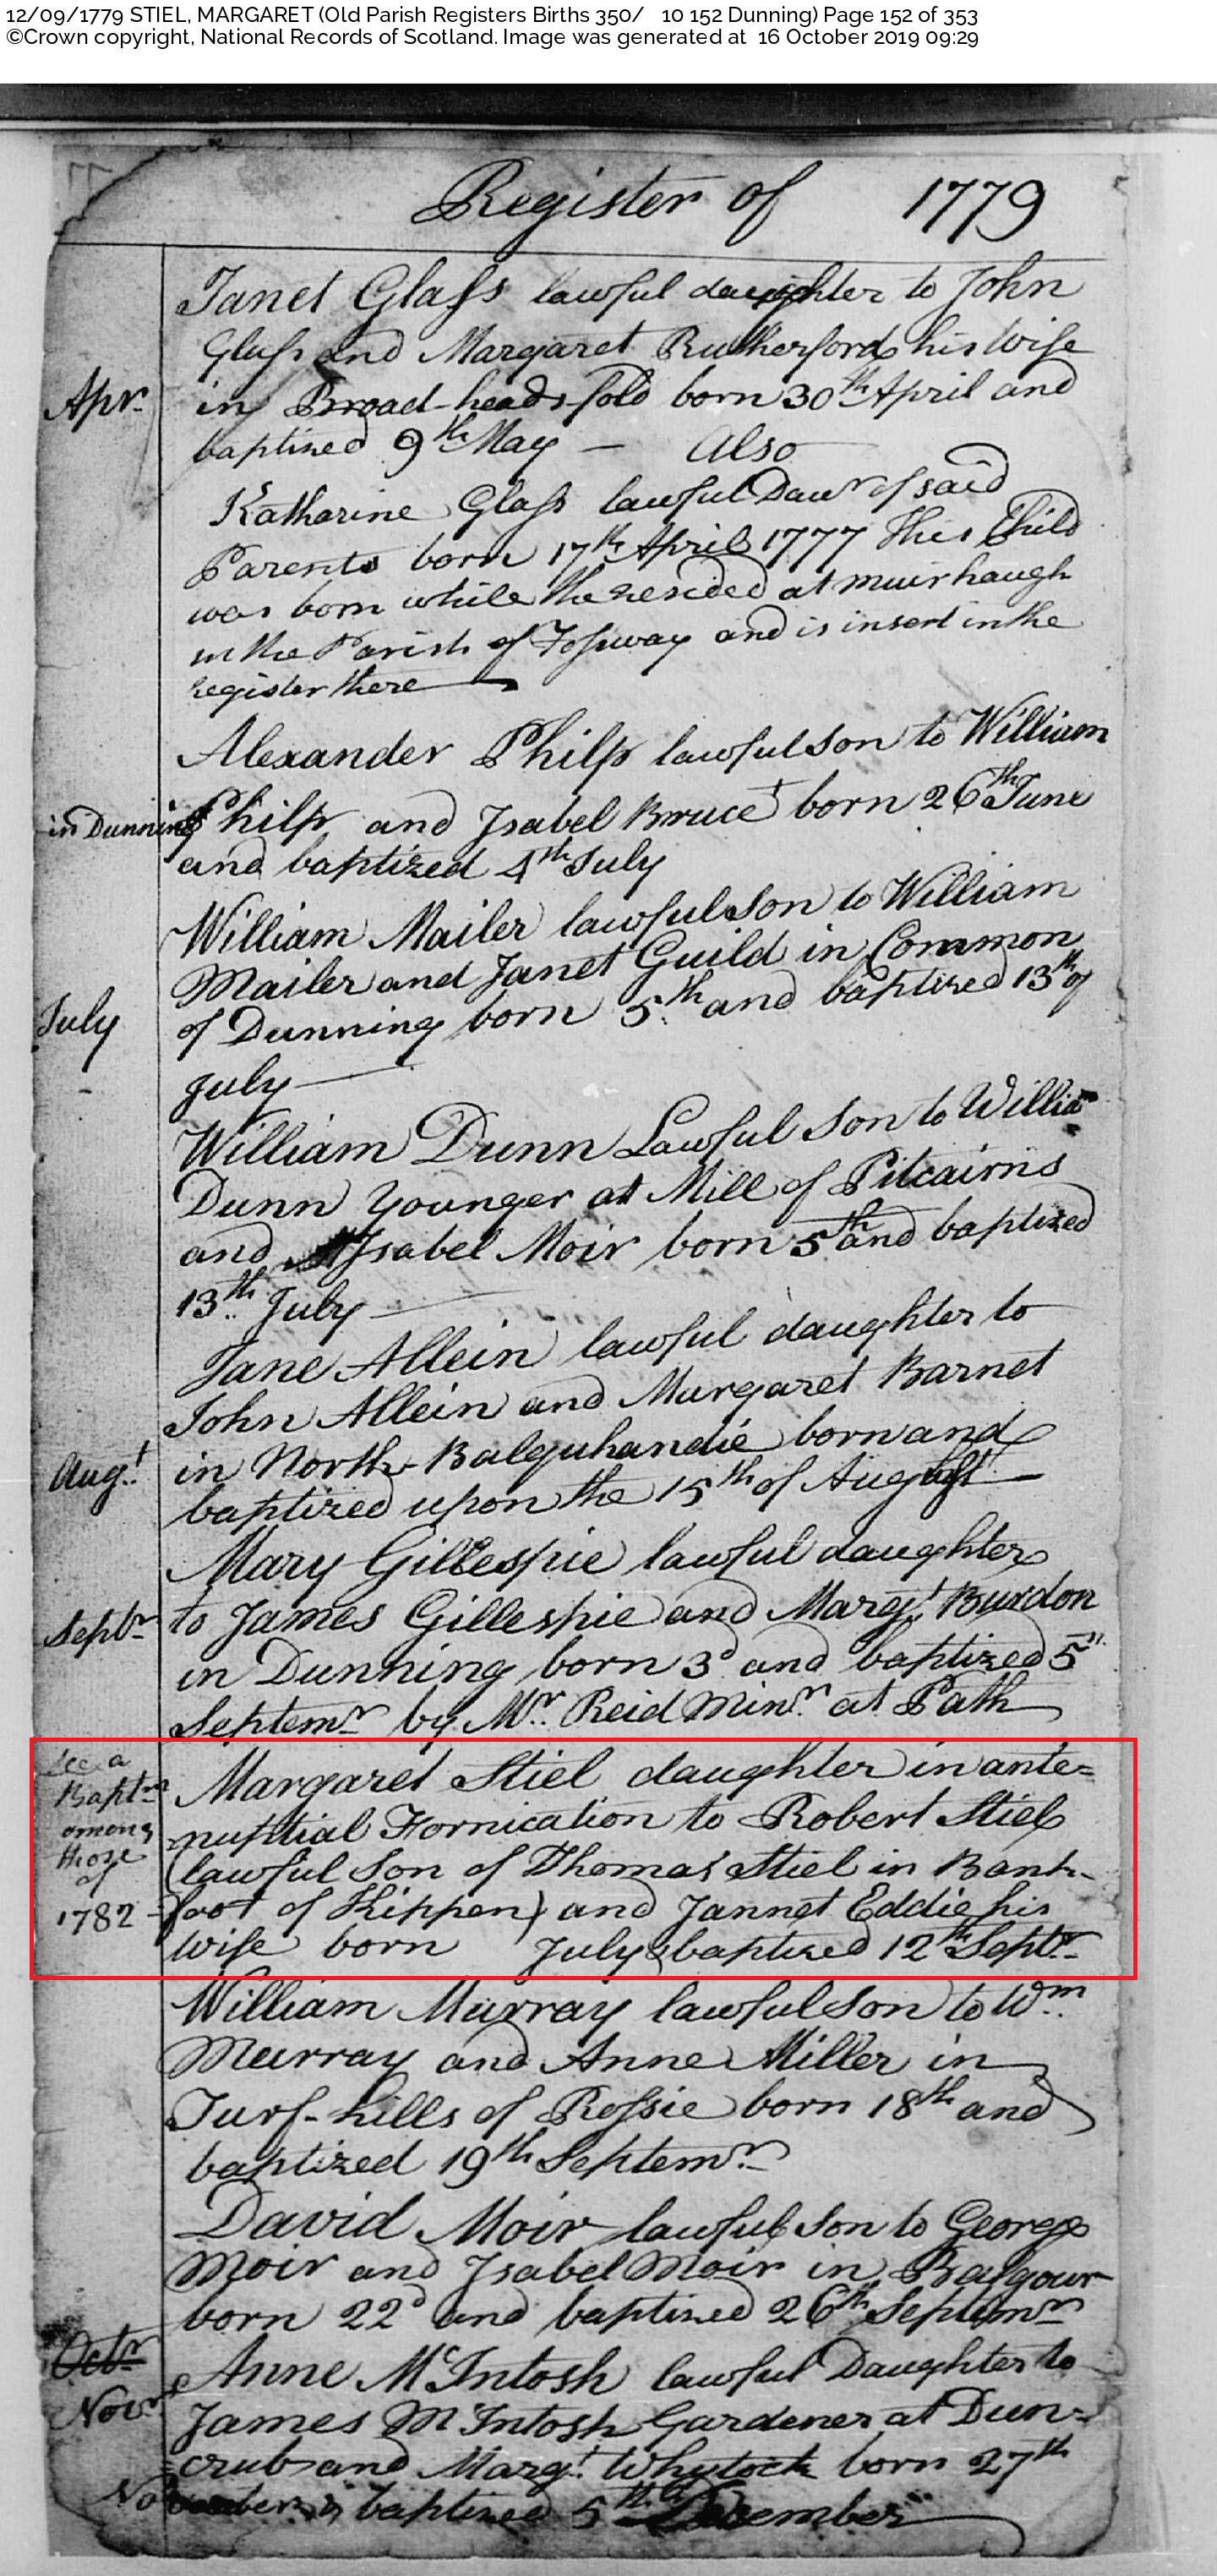 12/09/1779 STIEL, MARGARET (Old Parish Registers Births 350/ 10 152 Dunning) Page 152 of 353
©Crown copyright, National Records of Scotland. Image was generated at 16 October 2019 09:29
Register of 1779
Janet Glass lawful daughter to John
Glass and Margaret Rutherford his Wife
Apr.
in Broad-heads-fold born 30th April and
baptized 9th May — Also
Katharine Glass lawful Daur of said
Parents born 17th April 1777 This Child
was born while the resided at muirhaugh
in the Parish of Fossway and is insert in the
register there
Alexander Philp lawful son to William
in Dunning
Philp and Isabel Bruce born 26th June
and baptized 4th July
William Mailer lawful Son to William
Mailer and Janet Guild in Common
July
of Dunning born 5th and baptized 13th of
July
William Dunn Lawful Son to William
Dunn Younger at Mill of Pitcairns
and Isabel Moir born 5th and baptized
13th July
Jane Allein lawful daughter to
John Allein and Margaret Barnet
Augt
in North-Balquhandie born and
baptized upon the 15th of August
Mary Gillespie lawful daughter
Septr
to James Gillespie and Margt Burdon
in Dunning born 3d and baptized 5th
Septemr by Mr Reid Minr at Path
see a
Baptm
among
those
of
1782
Margaret Stiel daughter in ante=
nuptial Fornication to Robert Stiel
(lawful Son of Thomas Stiel in Bank-
foot of Kippen) and Jannet Eddie his
wife born July & baptized 12th Septr
William Murray lawful Son to Wm
Murray and Anne Miller in
Turf-hills of Rossie born 18th and
baptized 19th Septemr
David Moir lawful Son to George
Moir and Isabel Moir in Balgour
born 22d and baptized 26th Septemr
Octr
Anne McIntosh lawful Daughter to
Novr
James McIntosh Gardener at Dun=
crub and Margt Whytock born 27th
November & baptized 5th December